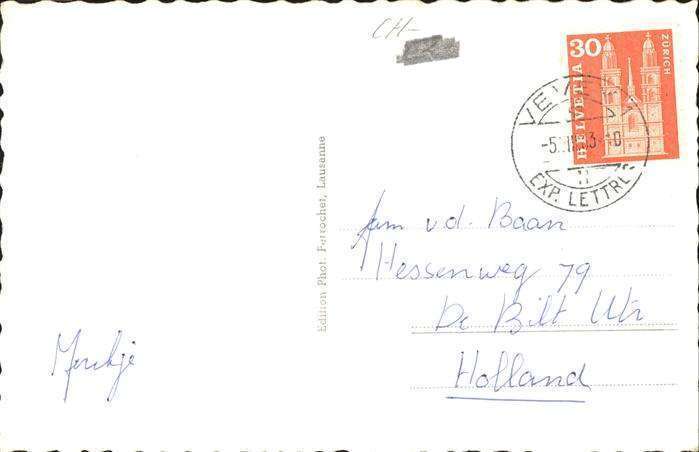 CH-
30
HELVETIA
ZÜRICH
VEVEY 1
EXP. LETTRES
Edition Phot. Perrochet, Lausanne
fam v.d. Baan
Hessenweg 79
De Bilt Utr
Holland